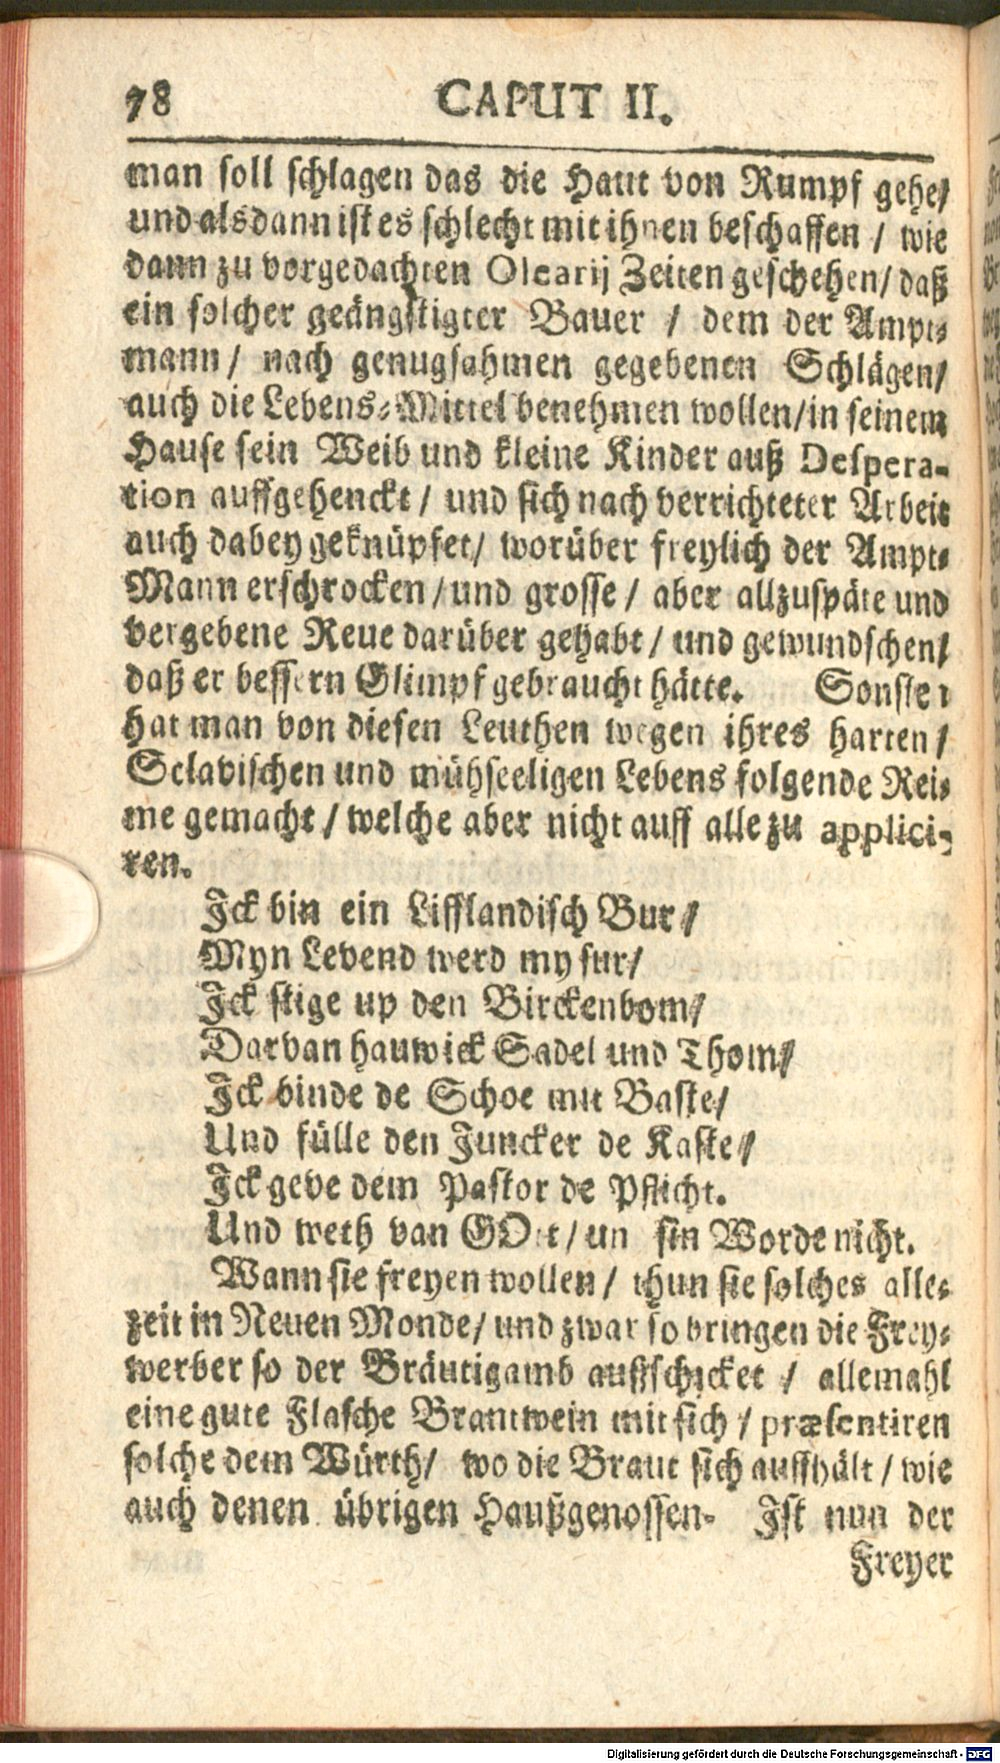 78 CAPUT II.
man soll schlagen das die Haut von Rumpf gehe/
und alsdann ist es schlecht mit ihnen beschaffen / wie
dann zu vorgedachten Olearij Zeiten geschehen/ daß
ein solcher geängstigter Bauer / dem der Ampt-
mann / nach genugsahmen gegebenen Schlägen/
auch die Lebens-Mittel benehmen wollen/in seinem
Hause sein Weib und kleine Kinder auß Despera-
tion auffgehenckt / und sich nach verrichteter Arbeit
auch dabey geknüpfet/ worüber freylich der Ampt-
Mann erschrocken / und grosse / aber allzuspäte und
vergebene Reue darüber gehabt / und gewundschen/
daß er bessern Glimpf gebraucht hätte. Sonsten
hat man von diesen Leuthen wegen ihres harten /
Sclavischen und mühseeligen Lebens folgende Rei-
me gemacht / welche aber nicht auff alle zu applici-
ren.
Ick bin ein Lifflandisch Bur /
Myn Levend werd my sur/
Ick stige up den Birckenbom/
Darvan hauwick Sadel und Thom/
Ick binde de Schoe mit Baste/
Und fülle den Juncker de Kaste/
Ick geve dem Pastor de Pflicht.
Und weth van GOtt / un sin Worde nicht.
Wann sie freyen wollen / thun sie solches alle-
zeit in Neuen Monde/ und zwar so bringen die Frey-
werber so der Bräutigamb außschicket / allemahl
eine gute Flasche Brantwein mit sich / præsentiren
solche dem Würth/ wo die Braut sich auffhält / wie
auch denen übrigen Haußgenossen. Ist nun der
Freyer
Digitalisierung gefördert durch die Deutsche Forschungsgemeinschaft - DFG